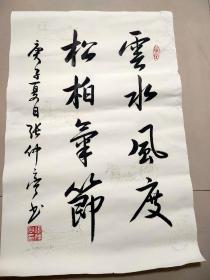 雲水風度
松柏氣節
庚子夏日張仲亭书